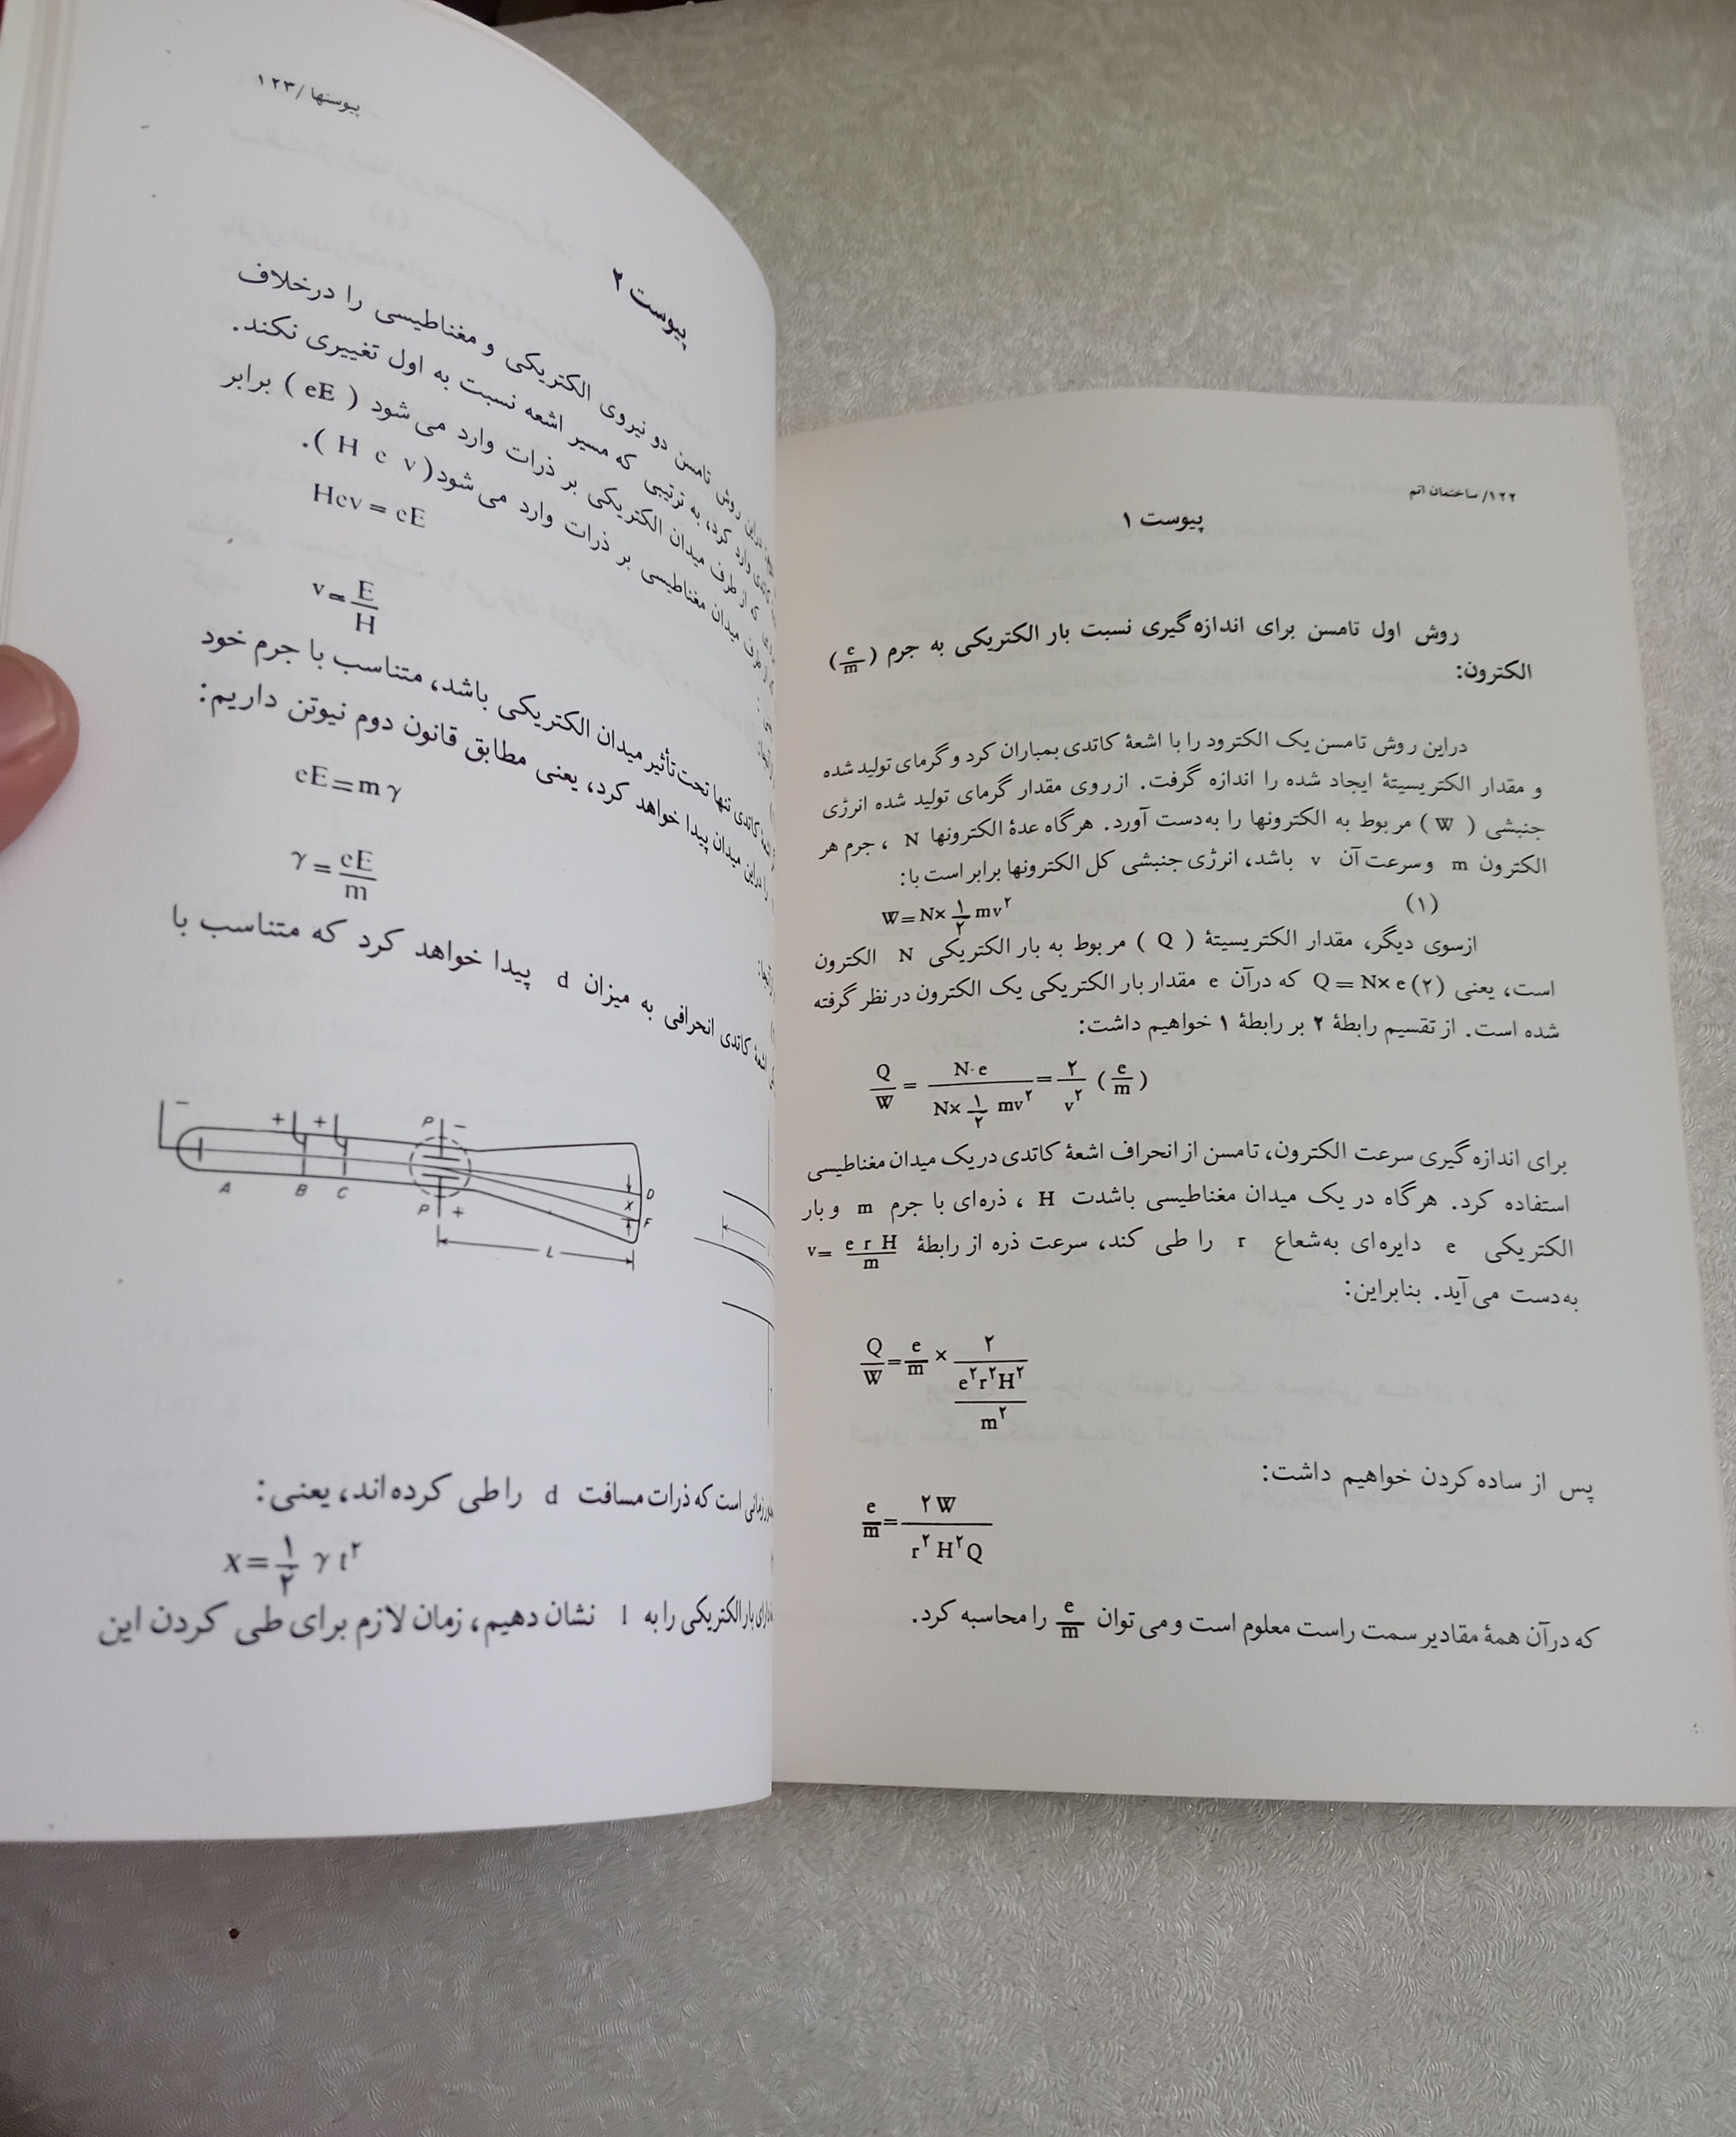 ۱۲۲/ ساختمان اتم
پیوست ۱
روش اول تامسن برای اندازه گیری نسبت بار الکتریکی به جرم (e/m)
الکترون:
دراین روش تامسن یک الکترود را با اشعهٔ کاتدی بمباران کرد و گرمای تولید شده
و مقدار الکتریسیتهٔ ایجاد شده را اندازه گرفت. ازروی مقدار گرمای تولید شده انرژی
جنبشی ( W ) مربوط به الکترونها را به‌دست آورد. هرگاه عدهٔ الکترونها N ، جرم هر
الکترون m وسرعت آن v باشد، انرژی جنبشی کل الکترونها برابر است با:
W=N×۱/۲ mv^۲ (۱)
ازسوی دیگر، مقدار الکتریسیتهٔ ( Q ) مربوط به بار الکتریکی N الکترون
است، یعنی Q=N×e(۲) که درآن e مقدار بار الکتریکی یک الکترون در نظر گرفته
شده است. از تقسیم رابطهٔ ۲ بر رابطهٔ ۱ خواهیم داشت:
Q/W = N·e/(N×۱/۲ mv^۲) = ۲/v^۲ (e/m)
برای اندازه گیری سرعت الکترون، تامسن از انحراف اشعهٔ کاتدی دریک میدان مغناطیسی
استفاده کرد. هرگاه در یک میدان مغناطیسی باشدت H ، ذره‌ای با جرم m و بار
الکتریکی e دایره‌ای به‌شعاع r را طی کند، سرعت ذره از رابطهٔ v= e r H/m
به‌دست می‌آید. بنابراین:
Q/W = e/m × ۲/(e^۲r^۲H^۲/m^۲)
پس از ساده کردن خواهیم داشت:
e/m = ۲W/(r^۲H^۲Q)
که درآن همهٔ مقادیر سمت راست معلوم است و می‌توان e/m را محاسبه کرد.
پیوستها /۱۲۳
پیوست ۲
روش تامسن دو نیروی الکتریکی و مغناطیسی را درخلاف
وارد کرد، به ترتیبی که مسیر اشعه نسبت به اول تغییری نکند.
که از طرف میدان الکتریکی بر ذرات وارد می‌شود ( eE ) برابر
طرف میدان مغناطیسی بر ذرات وارد می‌شود( H e v ).
Hev=eE
v=E/H
کاتدی تنها تحت تأثیر میدان الکتریکی باشد، متناسب با جرم خود
را دراین میدان پیدا خواهد کرد، یعنی مطابق قانون دوم نیوتن داریم:
eE=mγ
γ=eE/m
اشعهٔ کاتدی انحرافی به میزان d پیدا خواهد کرد که متناسب با
− + + P −
A B C P + D X F
L
زمانی است که ذرات مسافت d را طی کرده‌اند، یعنی:
x=۱/۲ γ t^۲
بار الکتریکی را به l نشان دهیم، زمان لازم برای طی کردن این